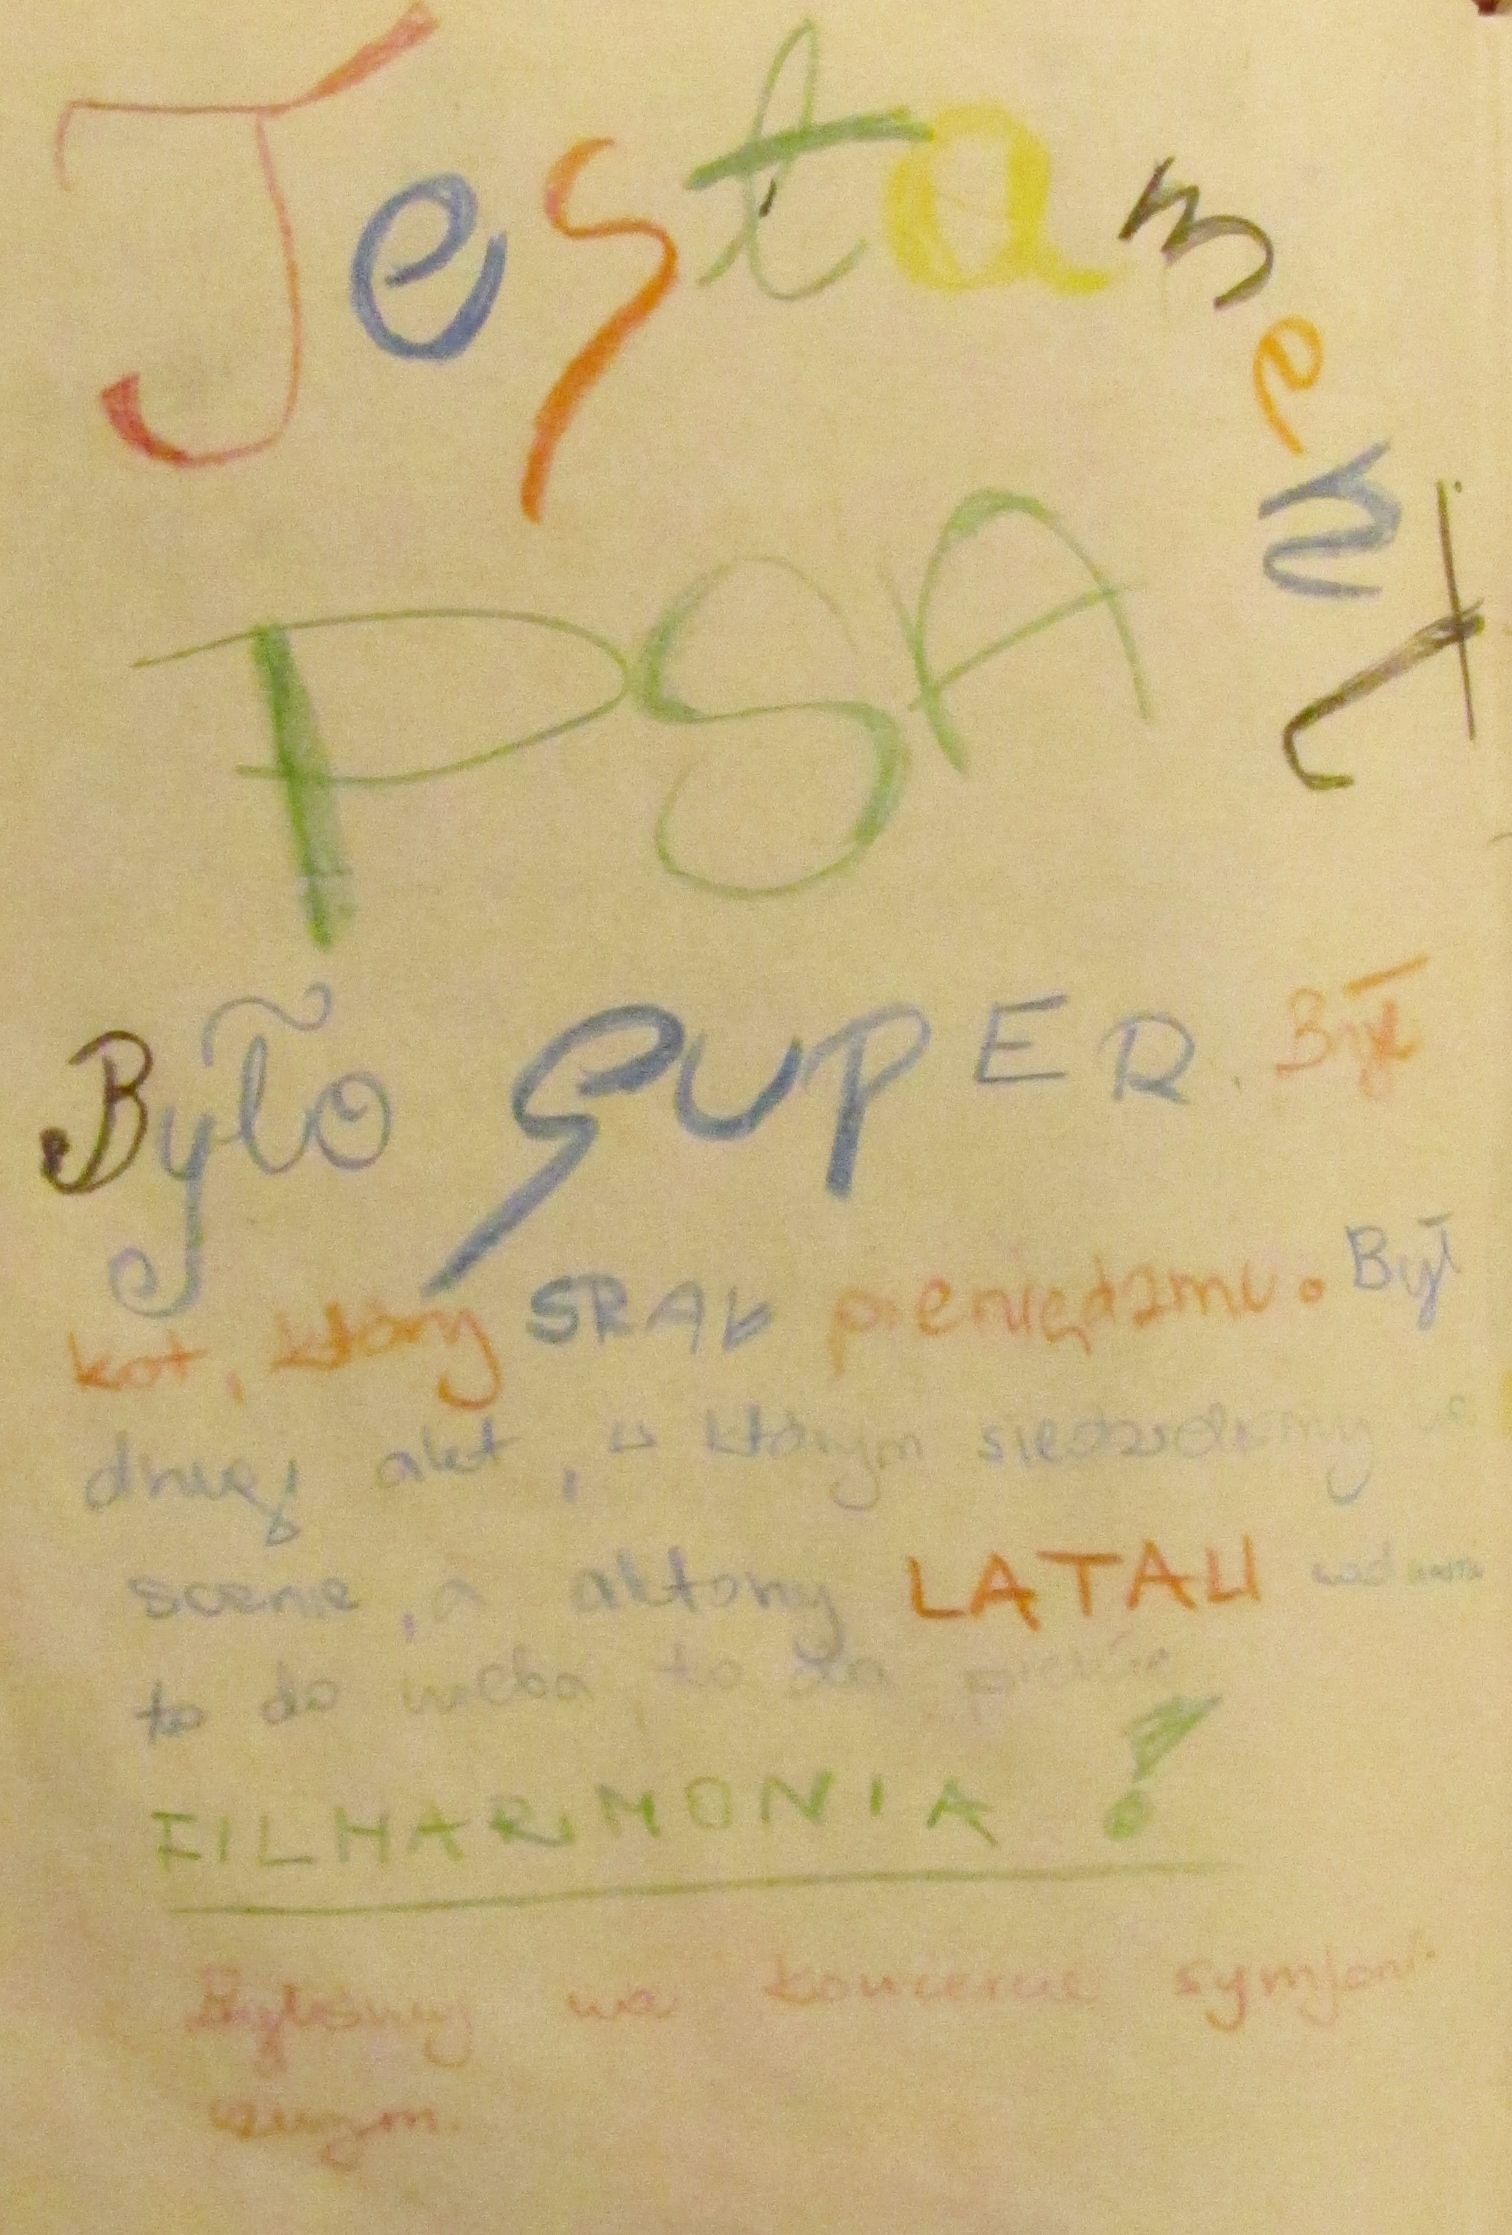 Testament
PSA
Było SUPER. Był
kot, który SRAŁ pieniędzmi. Był
drugi akt, w którym siedzieliśmy na
scenie, a aktorzy LATALI nad nami
to do nieba, to na
FILHARMONIA!
Byliśmy na koncercie symfoni-
cznym.